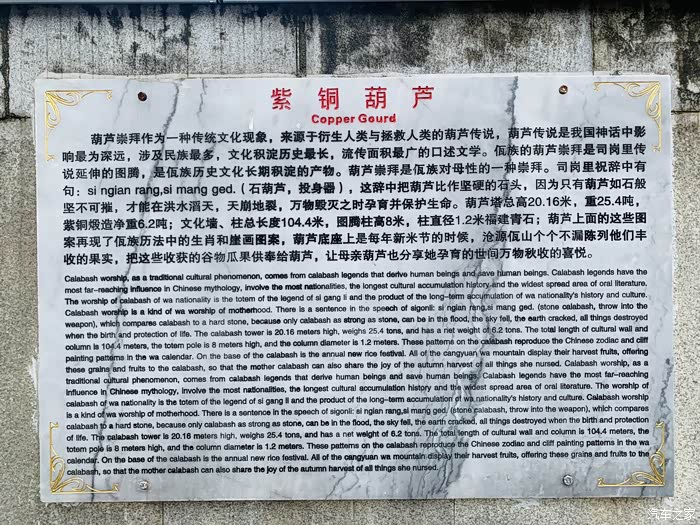 紫铜葫芦
Copper Gourd
葫芦崇拜作为一种传统文化现象，来源于衍生人类与拯救人类的葫芦传说，葫芦传说是我国神话中影
响最为深远，涉及民族最多，文化积淀历史最长，流传面积最广的口述文学。佤族的葫芦崇拜是司岗里传
说延伸的图腾，是佤族历史文化长期积淀的产物。葫芦崇拜是佤族对母性的一种崇拜。司岗里祝辞中有
句：si ngian rang,si mang ged.（石葫芦，投身器），这辞中把葫芦比作坚硬的石头，因为只有葫芦如石般
坚不可摧，才能在洪水滔天，天崩地裂，万物毁灭之时孕育并保护生命。葫芦塔总高20.16米，重25.4吨，
紫铜煅造净重6.2吨；文化墙、柱总长度104.4米，图腾柱高8米，柱直径1.2米福建青石；葫芦上面的这些图
案再现了佤族历法中的生肖和崖画图案，葫芦底座上是每年新米节的时候，沧源佤山个个不漏陈列他们丰
收的果实，把这些收获的谷物瓜果供奉给葫芦，让母亲葫芦也分享她孕育的世间万物秋收的喜悦。
Calabash worship, as a traditional cultural phenomenon, comes from calabash legends that derive human beings and save human beings. Calabash legends have the
most far-reaching influence in Chinese mythology, involve the most nationalities, the longest cultural accumulation history and the widest spread area of oral literature.
The worship of calabash of wa nationality is the totem of the legend of si gang li and the product of the long-term accumulation of wa nationality's history and culture.
Calabash worship is a kind of wa worship of motherhood. There is a sentence in the speech of sigonli: si ngian rang,si mang ged. (stone calabash, throw into the
weapon), which compares calabash to a hard stone, because only calabash as strong as stone, can be in the flood, the sky fell, the earth cracked, all things destroyed
when the birth and protection of life. The calabash tower is 20.16 meters high, weighs 25.4 tons, and has a net weight of 6.2 tons. The total length of cultural wall and
column is 104.4 meters, the totem pole is 8 meters high, and the column diameter is 1.2 meters. These patterns on the calabash reproduce the Chinese zodiac and cliff
painting patterns in the wa calendar. On the base of the calabash is the annual new rice festival. All of the cangyuan wa mountain display their harvest fruits, offering
these grains and fruits to the calabash, so that the mother calabash can also share the joy of the autumn harvest of all things she nursed. Calabash worship, as a
traditional cultural phenomenon, comes from calabash legends that derive human beings and save human beings. Calabash legends have the most far-reaching
influence in Chinese mythology, involve the most nationalities, the longest cultural accumulation history and the widest spread area of oral literature. The worship of
calabash of wa nationality is the totem of the legend of si gang li and the product of the long-term accumulation of wa nationality's history and culture. Calabash worship
is a kind of wa worship of motherhood. There is a sentence in the speech of sigonli: si ngian rang,si mang ged. (stone calabash, throw into the weapon), which compares
calabash to a hard stone, because only calabash as strong as stone, can be in the flood, the sky fell, the earth cracked, all things destroyed when the birth and protection
of life. The calabash tower is 20.16 meters high, weighs 25.4 tons, and has a net weight of 6.2 tons. The total length of cultural wall and column is 104.4 meters, the
totem pole is 8 meters high, and the column diameter is 1.2 meters. These patterns on the calabash reproduce the Chinese zodiac and cliff painting patterns in the wa
calendar. On the base of the calabash is the annual new rice festival. All of the cangyuan wa mountain display their harvest fruits, offering these grains and fruits to the
calabash, so that the mother calabash can also share the joy of the autumn harvest of all things she nursed.
汽车之家